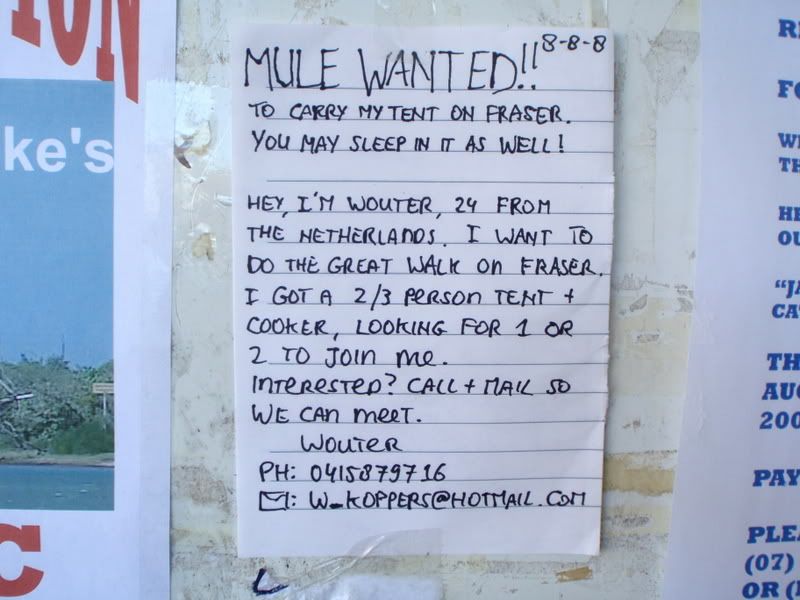 ION
ke's
C
MULE WANTED!! 8-8-8
TO CARRY MY TENT ON FRASER.
YOU MAY SLEEP IN IT AS WELL!
HEY, I'M WOUTER, 24 FROM
THE NETHERLANDS. I WANT TO
DO THE GREAT WALK ON FRASER.
I GOT A 2/3 PERSON TENT +
COOKER, LOOKING FOR 1 OR
2 TO JOIN ME.
INTERESTED? CALL + MAIL SO
WE CAN MEET.
WOUTER
PH: 0415879716
✉: W_KOPPERS@HOTMAIL.COM
RE
FO
WE
TH
HE
OU
"JA
CAT
TH
AUG
200
PAY
PLEA
(07)
OR (